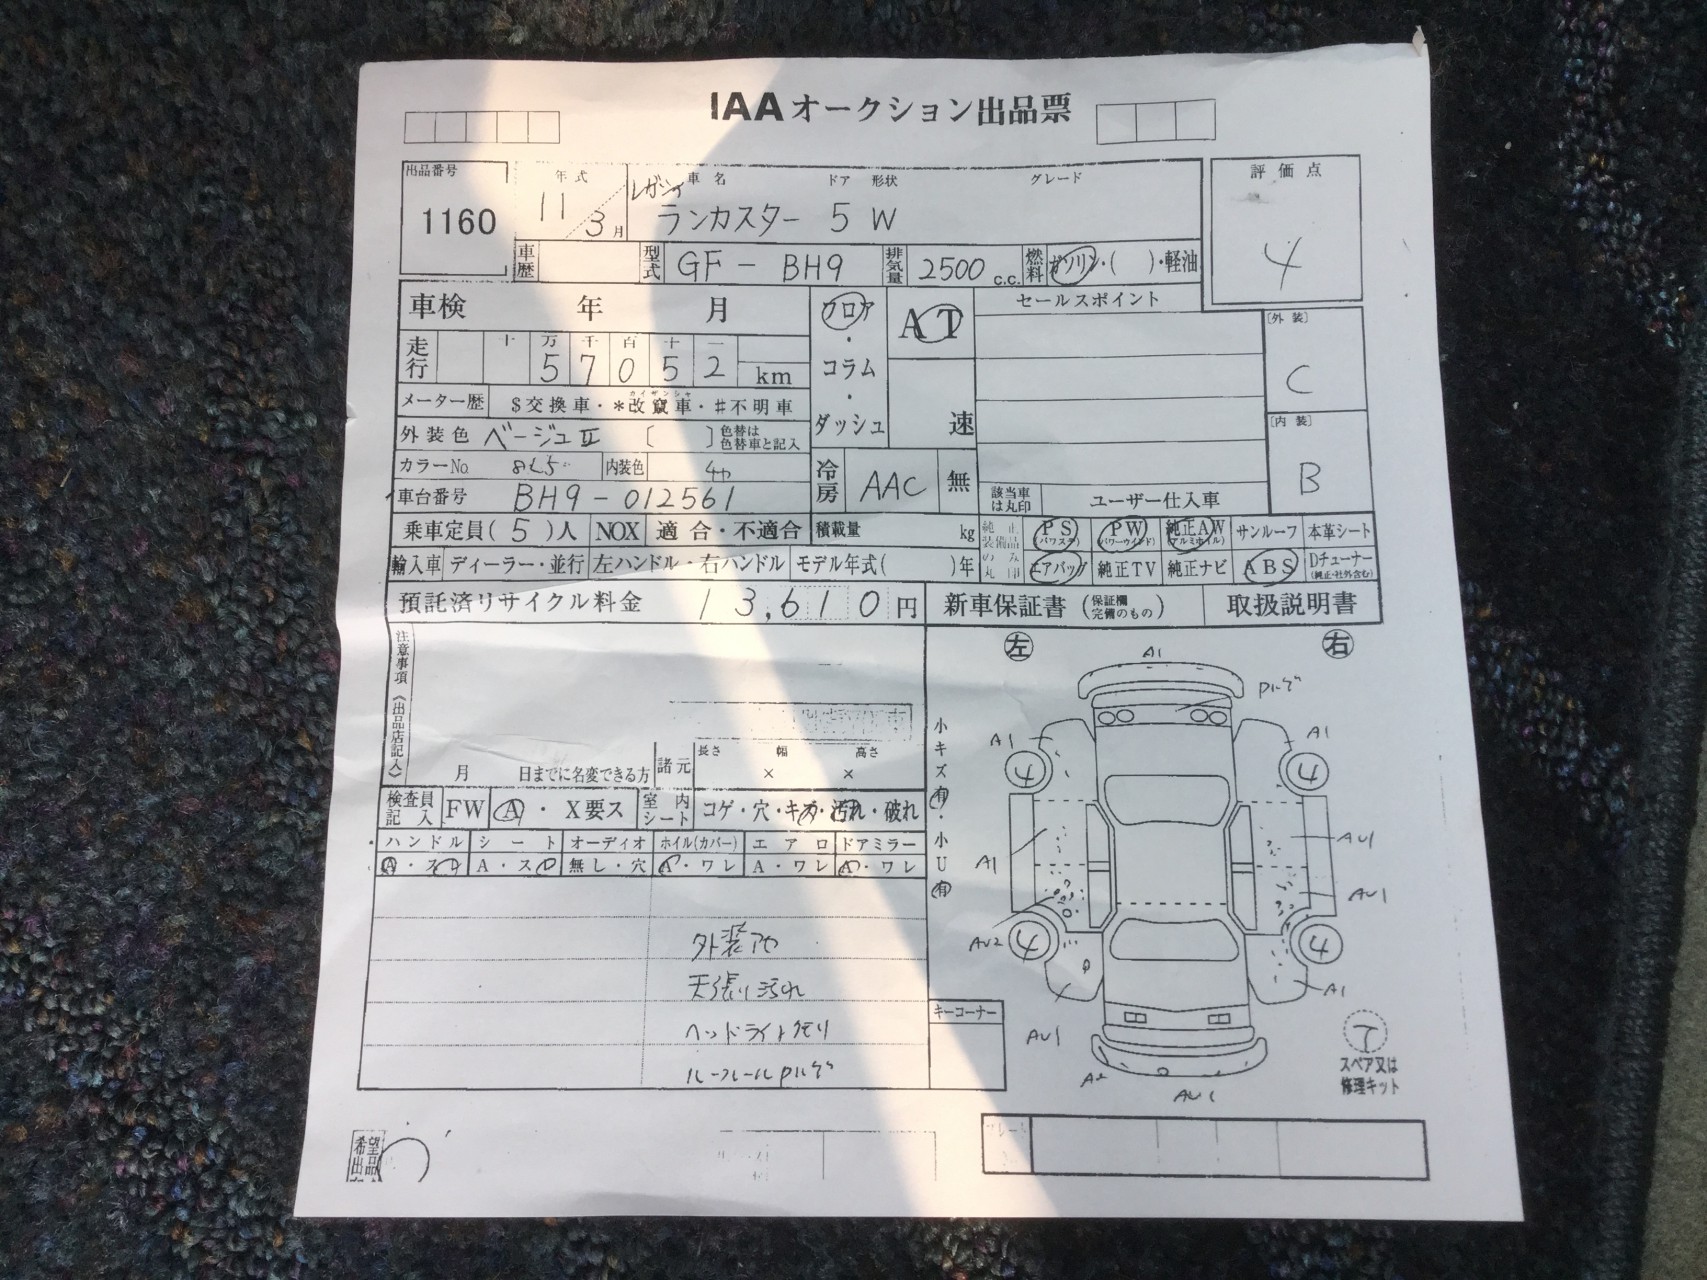 IAAオークション出品票
出品番号 年式 車名 ドア 形状 グレード 評価点
1160 11 3月 レガシィ ランカスター 5 W 4
車歴 型式 GF-BH9 排気量 2500 c.c. 燃料 ガソリン・( )・軽油
車検 年 月 フロア・コラム・ダッシュ AT 速 セールスポイント
[外装] C
走行 十 万 千 百 十 一
57052 km
メーター歴 $交換車・*改竄車・#不明車
カイザンシャ
[内装] B
外装色 ベージュII [ ] 色替は色替車と記入
カラーNo. 865 内装色
冷房 AAC 無
車台番号 BH9-012561
該当車は丸印 ユーザー仕入車
乗車定員(5)人 NOX 適合・不適合 積載量 kg
純正装備品のみ丸印 PS(パワステ) PW(パワーウインド) 純正AW(アルミホイル) サンルーフ 本革シート
輸入車 ディーラー・並行 左ハンドル・右ハンドル モデル年式( )年
エアバッグ 純正TV 純正ナビ ABS Dチューナー(純正・社外含む)
預託済リサイクル料金 13,610円 新車保証書(保証欄完備のもの) 取扱説明書
注意事項《出品店記入》
左 右
月 日までに名変できる方 諸元 長さ 幅 高さ
× ×
検査員記入 FW A・X要ス 室内シート コゲ・穴・キズ・汚れ・破れ
ハンドル シート オーディオ ホイル(カバー) エアロ ドアミラー
A・スロ A・スロ 無し・穴 A・ワレ A・ワレ A・ワレ
小キズ有・小U有
外装
天張り汚れ
ヘッドライトクモリ
ルーフレールPハゲ
キーコーナー
A1
Pハゲ
A1 A1
4 4
A1 AU1
AU1
AU2 4 4
A1
AU1
A2 AU1
T
スペア又は
修理キット
希望出品